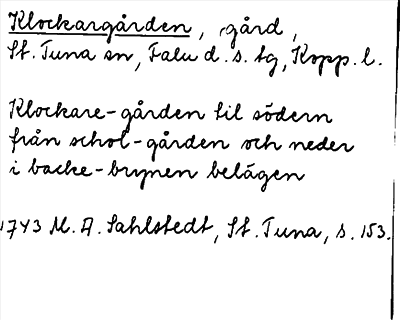 Klockargården, gård,
St. Tuna sn, Falu d. s. tg, Kopp. l.
Klockare-gården til södern
från schol-gården och neder
i backe-brynen belägen
1743 M. A. Sahlstedt, St. Tuna, s. 153.